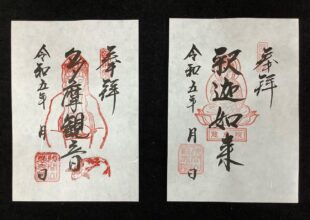 奉拝
多摩観音
令和五年 月 日
奉拝
釈迦如来
令和五年 月 日